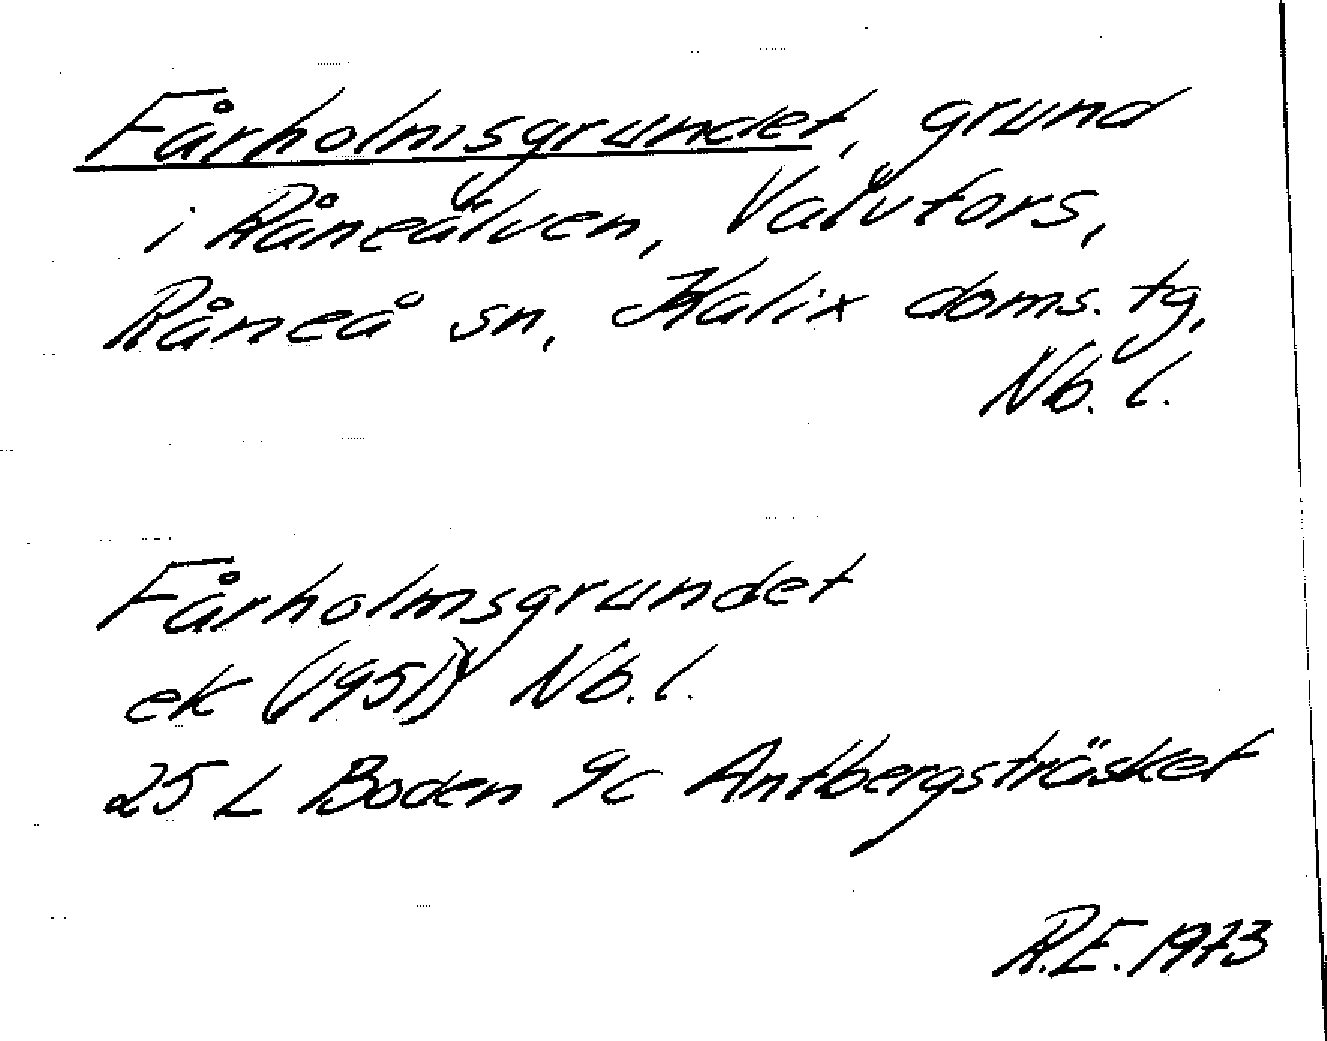 Fårholmsgrundet, grund
i Råneälven, Valvfors,
Råneå sn, Kalix doms. tg,
Nb. l.
Fårholmsgrundet
ek (1951) Nb. l.
25 L Boden 9c Antbergsträsket
R.E. 1973